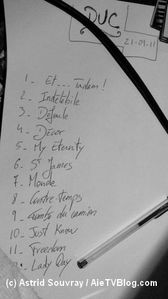 DUC
21-09-11
1_ Et... Tadam !
2_ Indélébile
3_ Défoule
4_ Décor
5_ My Eternity
6_ St James
7_ Monde
8_ Contre temps
9_ du camion
10_ Just Know
11_ Freedom
Lady Day
(c) Astrid Souvray / AieTVBlog.com